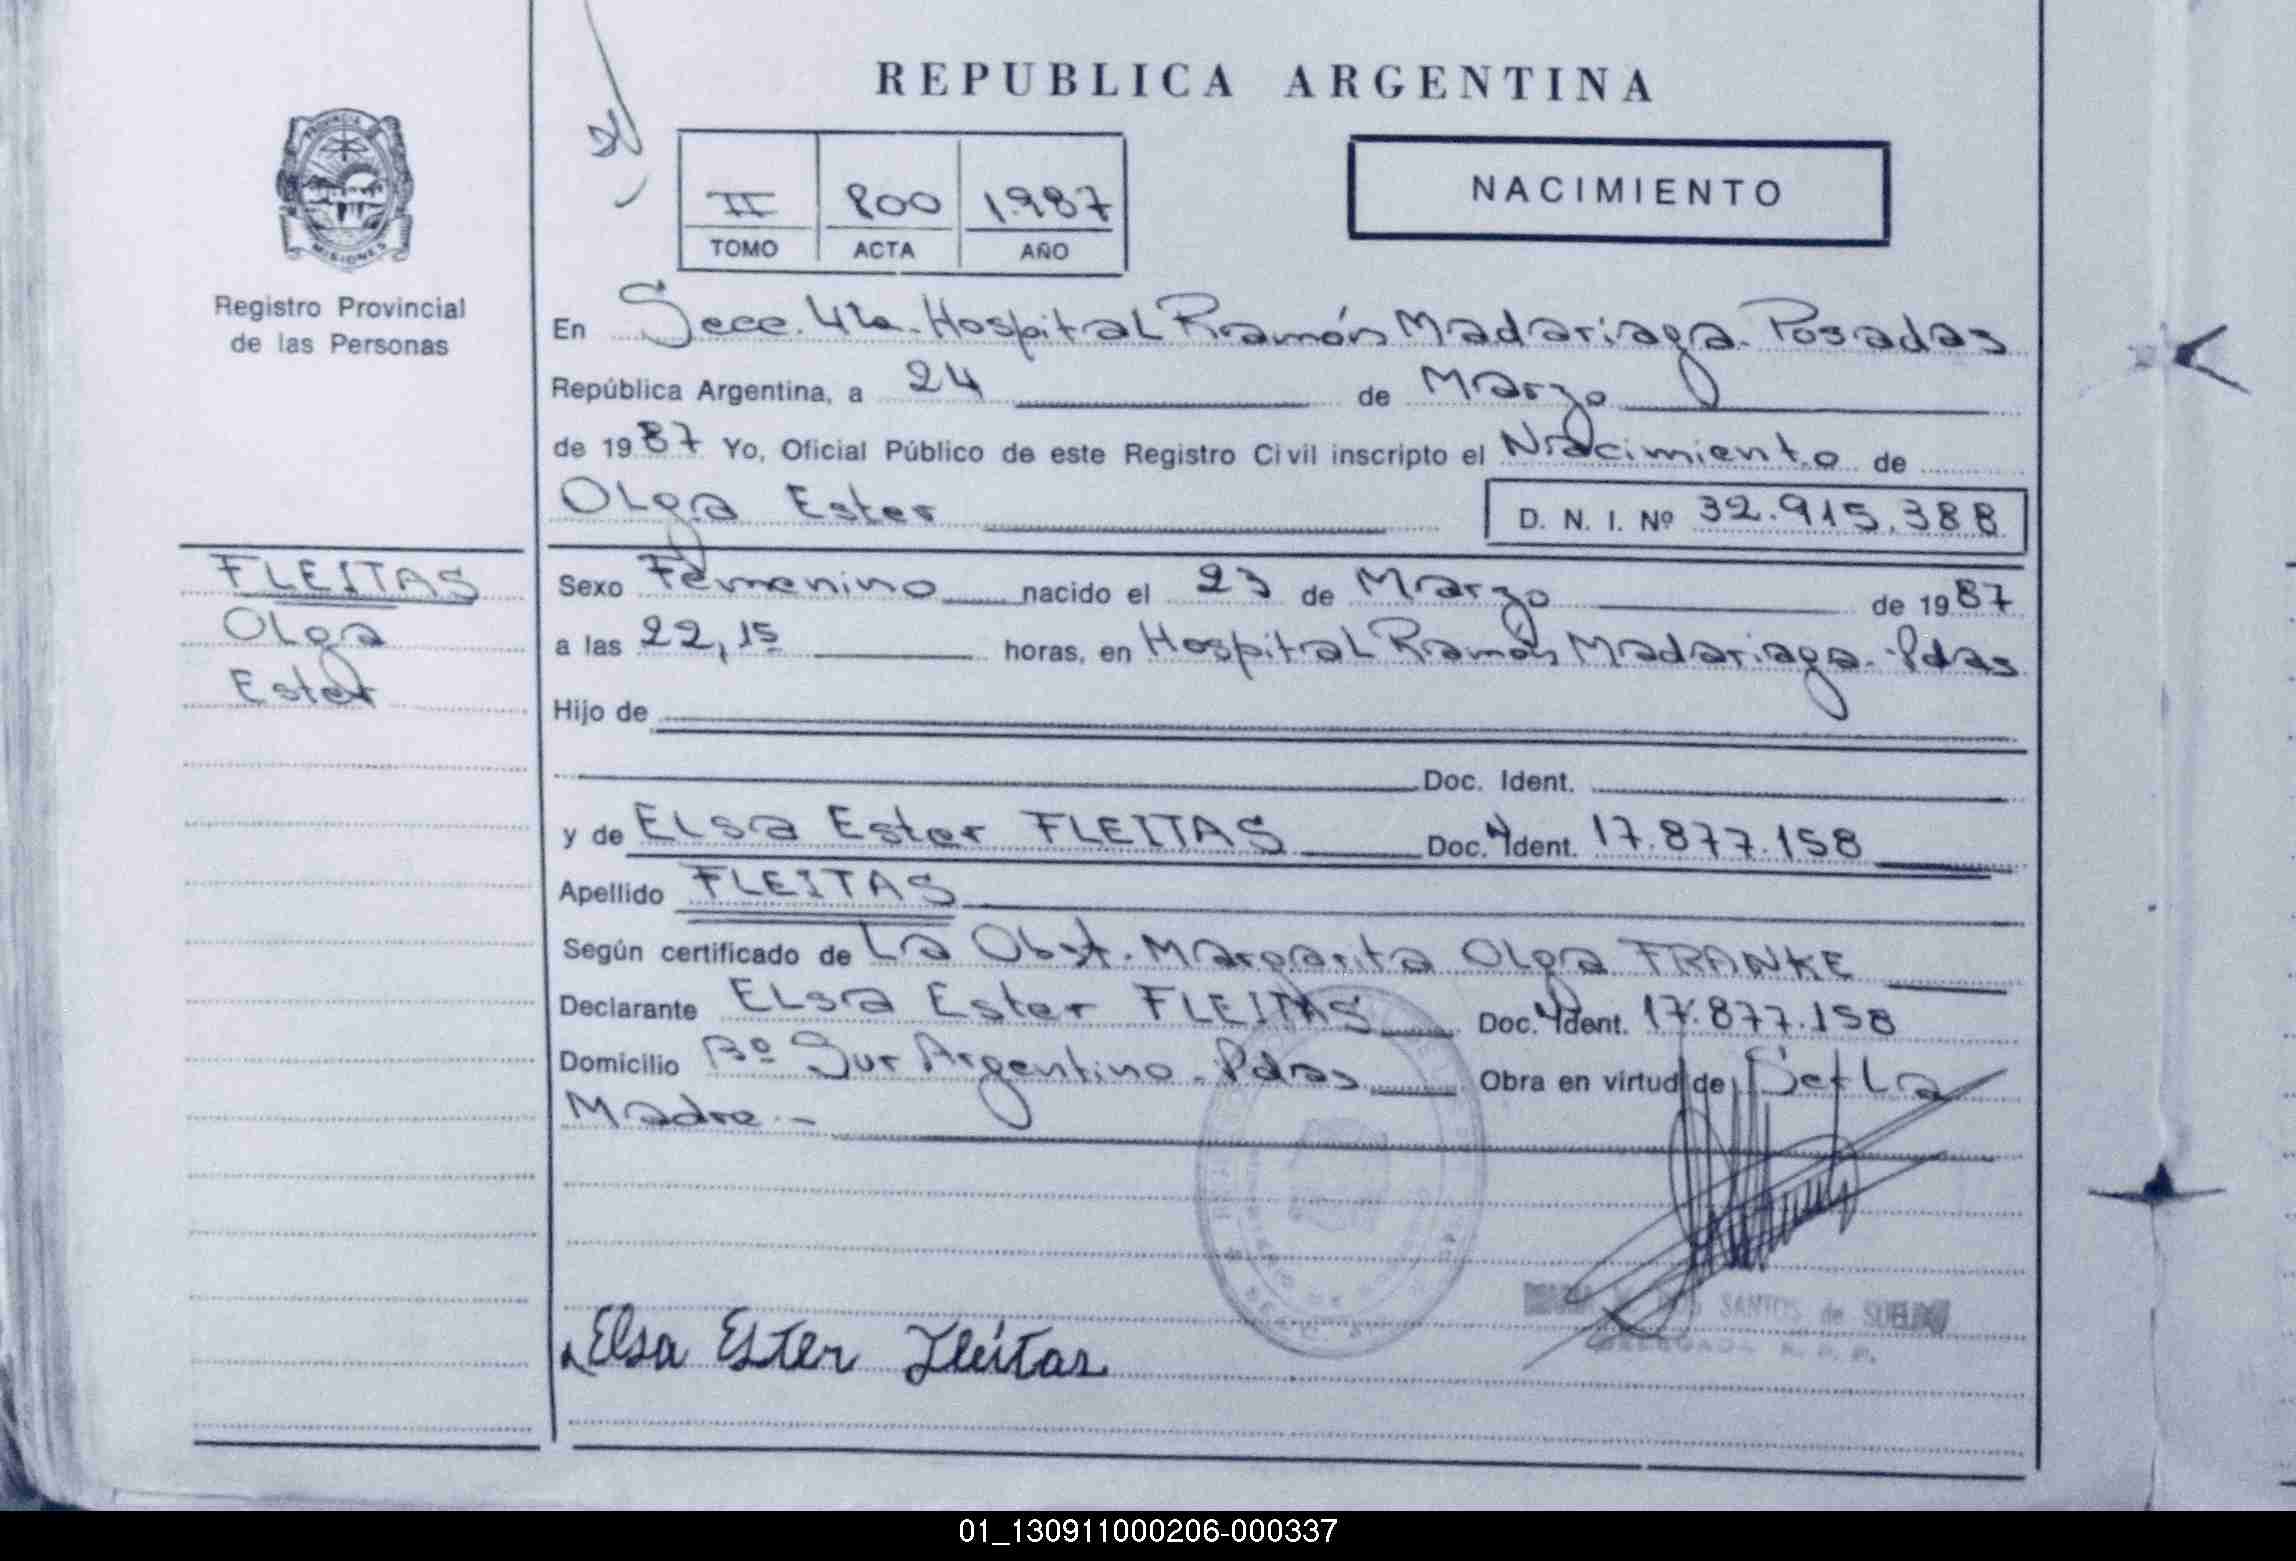 REPUBLICA ARGENTINA
PROVINCIA
MISIONES
Registro Provincial
de las Personas
II 800 1.987
TOMO ACTA AÑO
NACIMIENTO
En Secc. 4ta. Hospital Ramón Madariaga. Posadas
República Argentina, a 24 de Marzo
de 1987 Yo, Oficial Público de este Registro Civil inscripto el Nacimiento de
Olga Ester D. N. I. Nº 32.915.388
FLEITAS
Olga
Ester
Sexo Femenino nacido el 23 de Marzo de 1987
a las 22,15 horas, en Hospital Ramón Madariaga. Pdas
Hijo de
Doc. Ident.
y de ELsa Ester FLEITAS Doc. Ident. 17.877.158
Apellido FLEITAS
Según certificado de La Obst. Margarita Olga FRANKE
Declarante ELsa Ester FLEITAS Doc. Ident. 17.877.158
Domicilio Bº Sur Argentino. Pdas Obra en virtud de Ser La
Madre -
DOS SANTOS de
Elsa Ester Fleitas
01_130911000206-000337